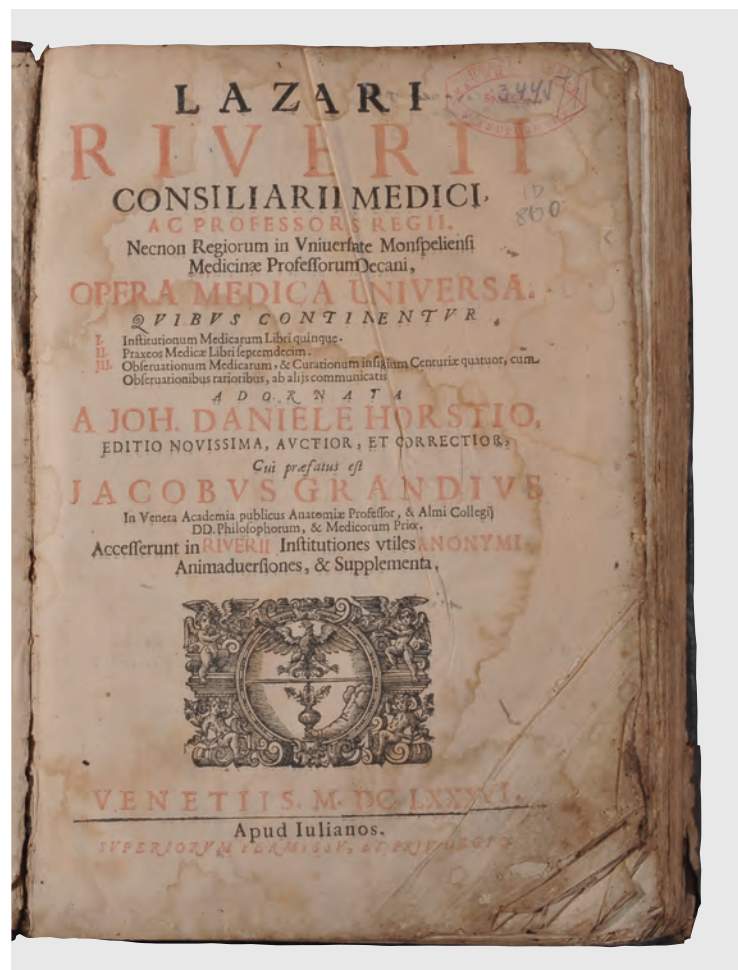 LAZARI
RIVERII
CONSILIARII MEDICI,
AC PROFESSORS REGII,
Necnon Regiorum in Vniuersitate Monſpelienſi
Medicinæ Profeſſorum Decani,
OPERA MEDICA UNIVERSA.
QVIBVS CONTINENTVR,
I. Inſtitutionum Medicarum Libri quinque.
II. Praxeos Medicæ Libri ſeptemdecim.
III. Obſeruationum Medicarum, & Curationum inſignium Centuriæ quatuor, cum
Obſeruationibus rarioribus, ab alijs communicatis
ADORNATA
A JOH. DANIELE HORSTIO,
EDITIO NOVISSIMA, AVCTIOR, ET CORRECTIOR,
Cui præfatus eſt
JACOBVS GRANDIVS
In Veneta Academia publicus Anatomiæ Profeſſor, & Almi Collegij
DD. Philoſophorum, & Medicorum Prior.
Acceſſerunt in RIVERII Inſtitutiones vtiles ANONYMI
Animaduerſiones, & Supplementa,
VENETIIS. M. DC
Apud Iulianos.
SVPERIORVM PERMISSV, ET PRIVILEGIO
860